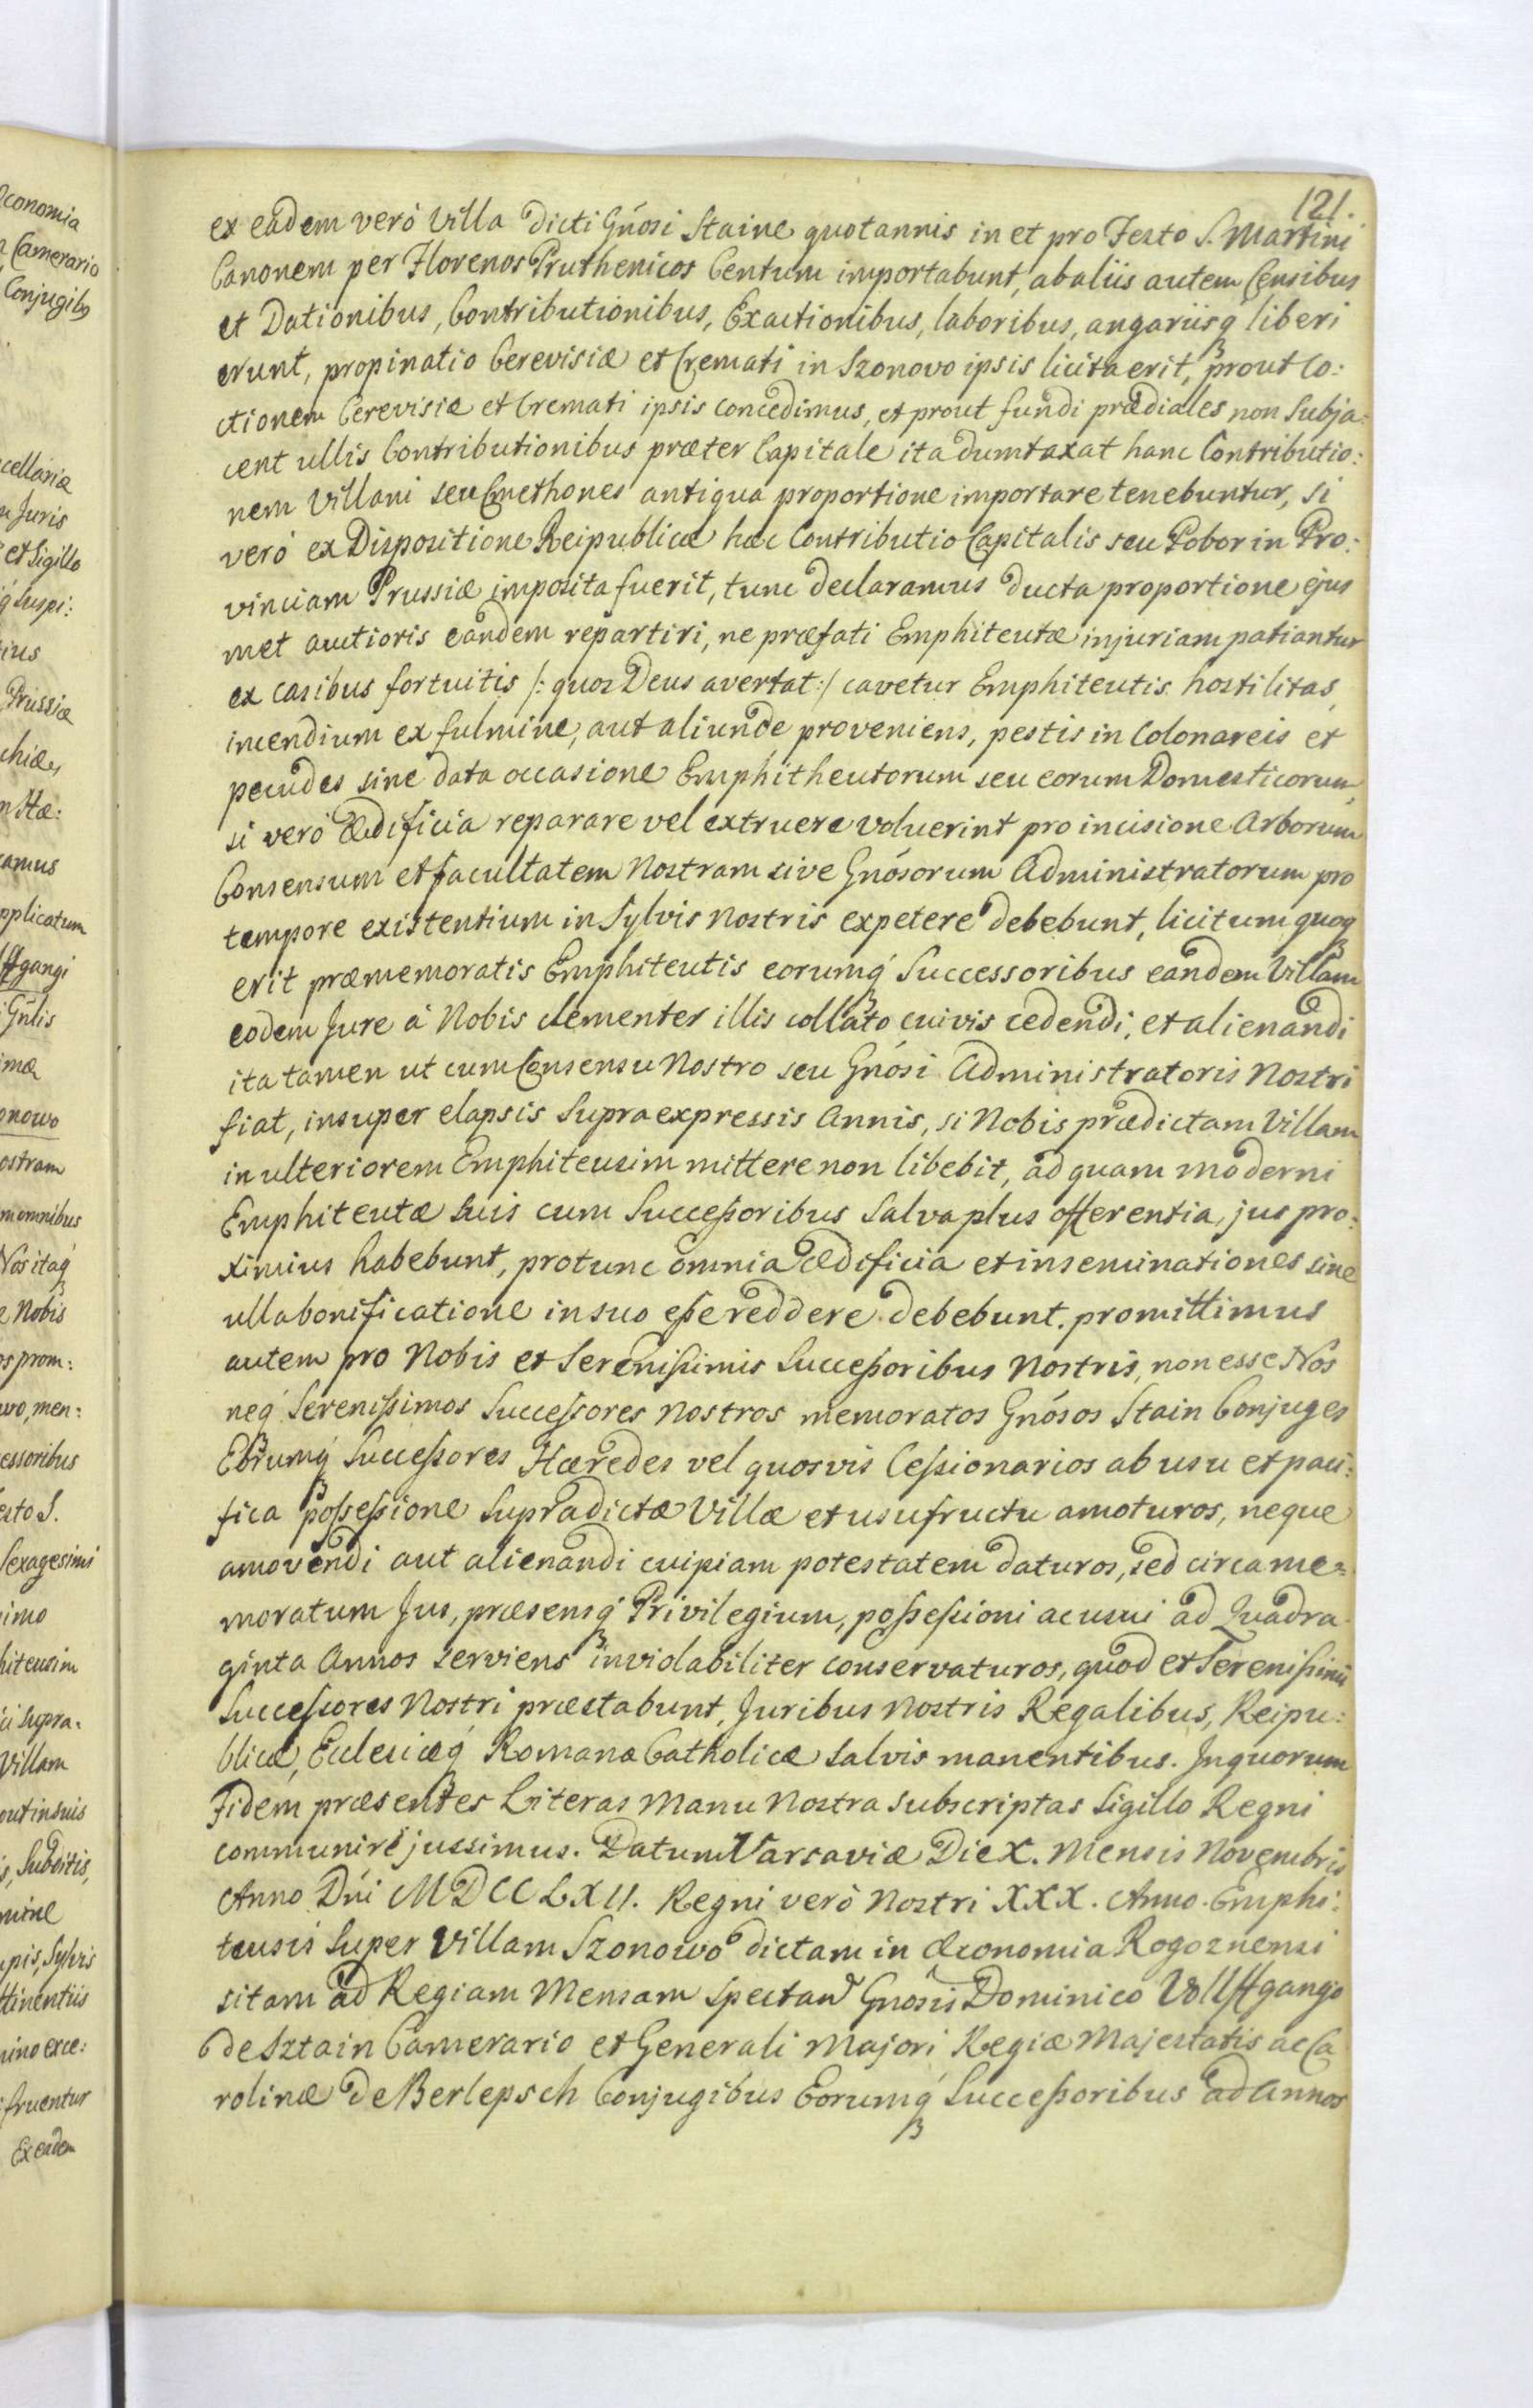 121.
ex eadem verò Villa dicti Gnósi Staine quotannis in et pro Festo S. Martini
Canonem per Florenos Pruthenicos Centum importabunt, ab aliis autem Censibus
et Dationibus, Contributionibus, Exactionibus, laboribus, angariisq́ liberi
erunt, propinatio Cerevisiæ et Cremati in Szonovo ipsis licita erit, prout Co:
ctionem Cerevisiæ et Cremati ipsis concedimus, et prout fundi prædiales non Subja:
cent ullis Contributionibus præter Capitale ita dumtaxat hanc Contributio:
nem Villani seu Cmethones antiqua proportione importare tenebuntur, si
verò ex Dispositione Reipublicæ hæc Contributio Capitalis seu Pobor in Pro:
vinciam Prussiæ imposita fuerit, tunc declaramus ducta proportione ejus
met auctioris eandem repartiri, ne præfati Emphiteutæ injuriam patiantur
ex casibus fortuitis /: quos Deus avertat :/ cavetur Emphiteutis hostilitas,
incendium ex fulmine, aut aliunde proveniens, pestis in Colonareis et
pecudes sine data occasione Emphitheutorum seu eorum Domesticorum,
si verò Ædificia reparare vel extruere voluerint pro incisione Arborum
Consensum et facultatem Nostram sive Gnósorum Administratorum pro
tempore existentium in Sylvis Nostris expetere debebunt, licitum quoq
erit præmemoratis Emphiteutis eorumq́ Successoribus eandem Villam
eodem Jure à Nobis clementer illis collato cuivis cedendi, et alienandi
ita tamen ut cum Consensu Nostro seu Gnósi Administratoris Nostri
fiat, insuper elapsis Supra expressis Annis, si Nobis prædictam Villam
in ulteriorem Emphiteusim mittere non libebit, ad quam moderni
Emphiteutæ suis cum Successoribus Salva plus offerentia, jus pro:
ximius habebunt, pro tunc omnia ædificia et inseminationes sine
ulla bonificatione in suo esse reddere debebunt. promittimus
autem pro Nobis et Serenissimis Successoribus Nostris, non esse Nos
neq́ Serenissimos Successores Nostros memoratos Gnósos Stain Conjuges
Eorumq́ Successores Hæredes vel quosvis Cessionarios ab usu et paci:
fica possessione Supradictæ Villæ et usufructu amoturos, neque
amovendi aut alienandi cuipiam potestatem daturos, sed circa me:
moratum Jus, præsensq́ Privilegium, possessioni ac usui ad Quadra
ginta Annos serviens inviolabiliter conservaturos, quod et Serenissimi
Successores Nostri præstabunt, Juribus Nostris Regalibus, Reipu:
blicæ, Eclesiæq́ Romanæ Catholicæ salvis manentibus. In quorum
Fidem præsentes Literas Manu Nostra subscriptas Sigillo Regni
communiri jussimus. Datum Varsaviæ Die X. Mensis Novembris
Anno Dńi MDCCLXII. Regni verò Nostri XXX. Anno. Emphi:
teusis Super Villam Szonowo dictam in Œconomia Rogoznensi
sitam ad Regiam Mensam Spectan Gnósis Dominico Vollffgango
de Sztain Camerario et Generali Majori Regiæ Majestatis ac Ca
rolinæ de Berlepsch Conjugibus Eorumq́ Successoribus ad Annos